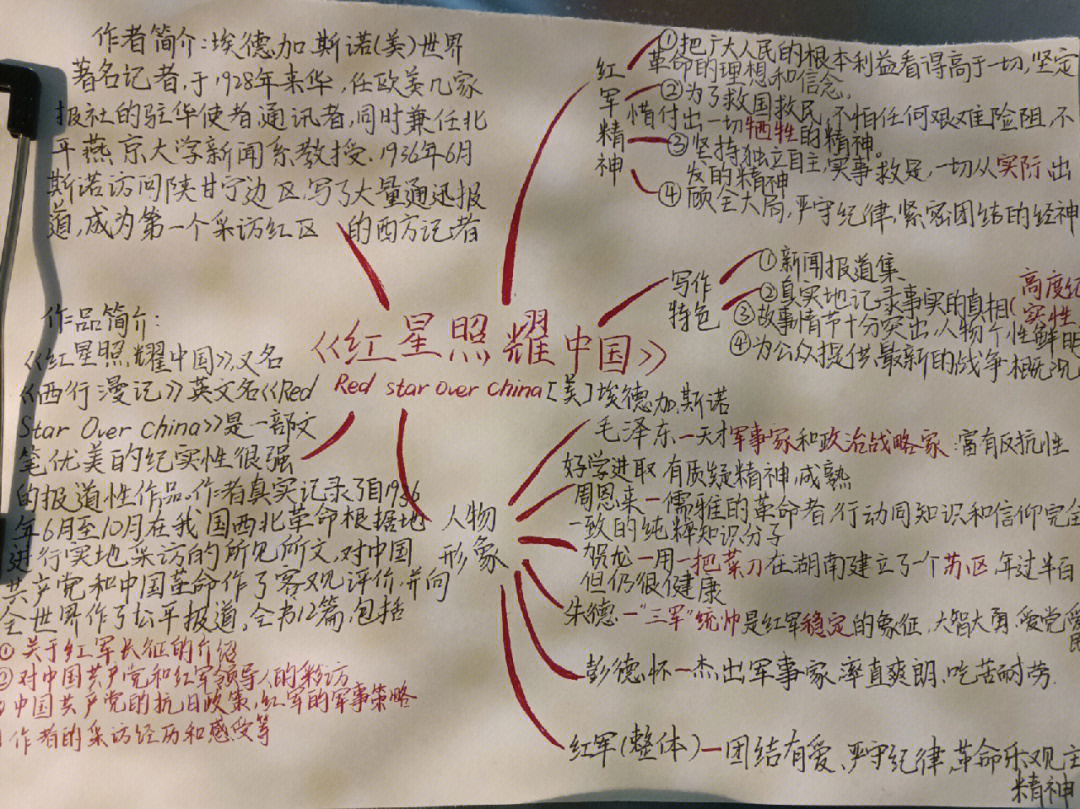 作者简介:埃德加.斯诺(美)世界
著名记者,于1928年来华,任欧美几家
报社的驻华使者通讯者,同时兼任北
平燕京大学新闻系教授.1936年6月
斯诺访问陕甘宁边区,写了大量通迅报
道,成为第一个采访红区 的西方记者
红军精神
①把广大人民的根本利益看得高于一切,坚定
革命的理想和信念,
②为了救国救民,不怕任何艰难险阻,不
惜付出一切牺牲的精神。
③坚持独立自主,实事救是,一切从实际出
发的精神
④顾全大局,严守纪律,紧密团结的经神
写作
特色
①新闻报道集
②真实地记录事实的真相(高度纪
实性
③故事情节十分突出,人物个性鲜明
④为公众提供最新的战争概况
《红星照耀中国》
Red star over china[美]埃德加.斯诺
作品简介:
《红星照耀中国》,又名
《西行漫记》英文名《Red
Star Over china》是一部文
笔优美的纪实性很强
的报道性作品.作者真实记录了自1936
年6月至10月在我国西北革命根据地
进行实地采访的所见所文,对中国
共产党和中国革命作了客观评价,并向
全世界作了公平报道,全书12篇,包括
①关于红军长征的介绍
②对中国共产党和红军领导人的采访
中国共产党的抗日政策,红军的军事策略
作者的采访经历和感受等
人物
形象
毛泽东一天才军事家和政治战略家:富有反抗性
好学进取 有质疑精神,成熟
周恩来一儒雅的革命者,行动同知识和信仰完全
一致的纯粹知识分子
贺龙一用一把菜刀在湖南建立了个苏区,年过半百
但仍很健康
朱德一"三军"统帅是红军稳定的象征,大智大勇,爱党爱
民
彭德怀一杰出军事家,率直爽朗,吃苦耐劳.
红军(整体)一团结有爱、严守纪律,革命乐观主
精神